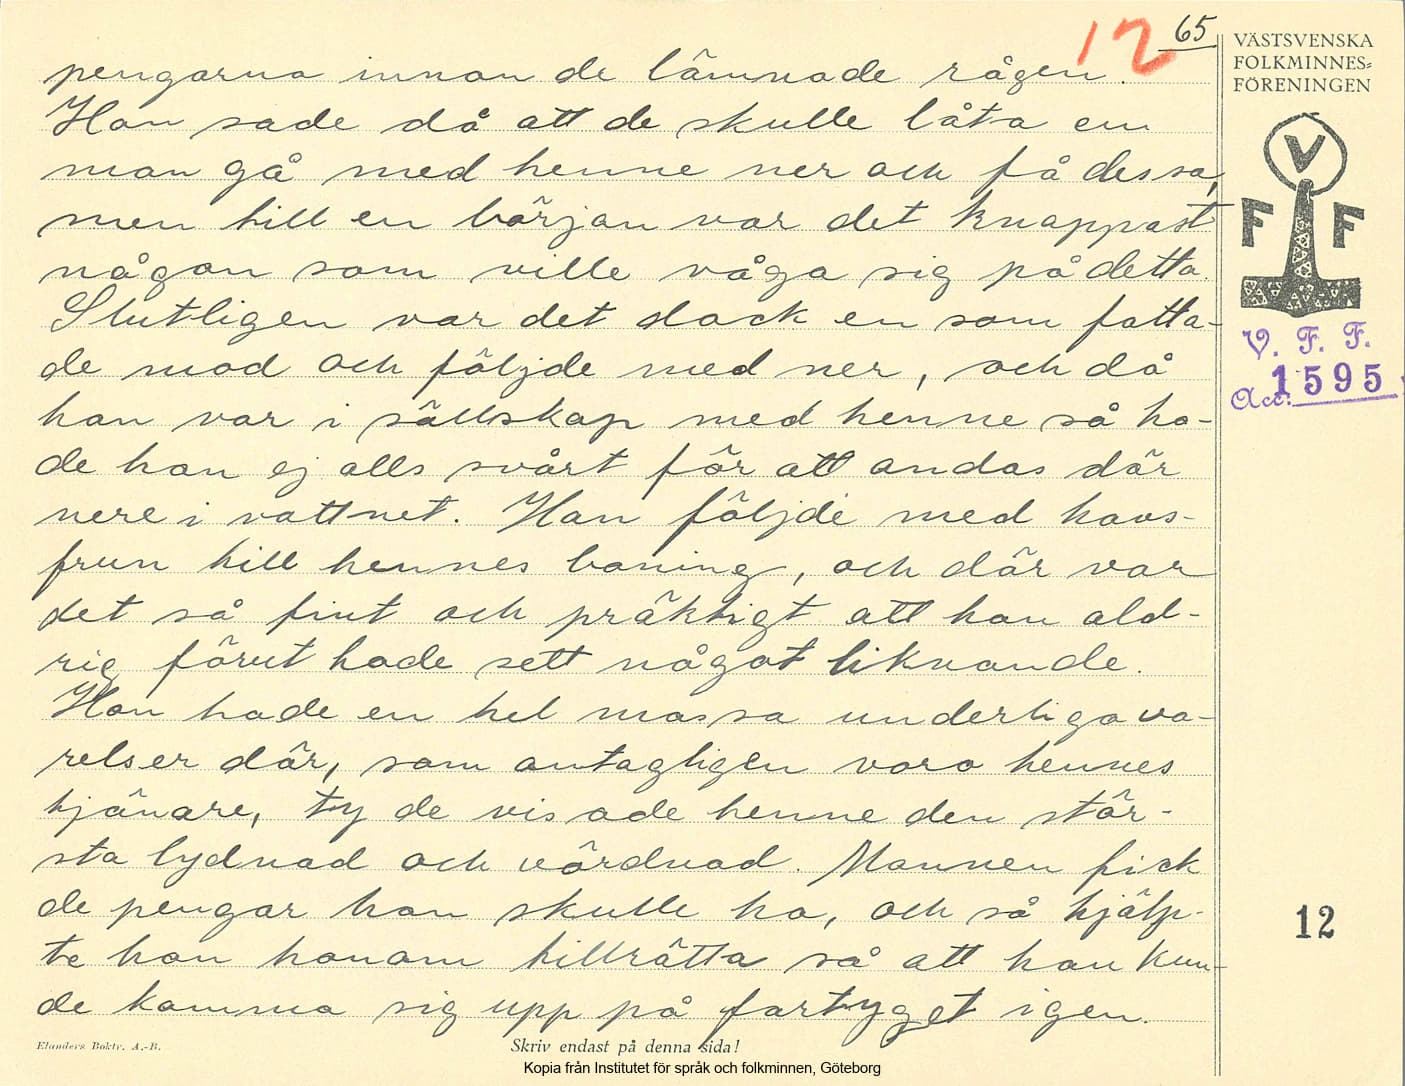 12 65
VÄSTSVENSKA
FOLKMINNES=
FÖRENINGEN
V
F F
V. F. F.
Acc: 1595
pengarna innan de lämnade rågen.
Hon sade då att de skulle låta en
man gå med henne ner och få dessa,
men till en början var det knappast
någon som ville våga sig på detta.
Slutligen var det dock en som fatta-
de mod och följde med ner, och då
han var i sällskap med henne så ha-
de han ej alls svårt för att andas där
nere i vattnet. Han följde med havs-
frun till hennes boning, och där var
det så fint och präktigt att han ald-
rig förut hade sett något liknande.
Hon hade en hel massa underliga va-
relser där, som antagligen voro hennes
tjänare, ty de visade henne den stör-
sta lydnad och vördnad. Mannen fick
de pengar han skulle ha, och så hjälp-
te hon honom tillrätta så att han kun-
de komma sig upp på fartyget igen.
12
Elanders Boktr. A.-B.
Skriv endast på denna sida!
Kopia från Institutet för språk och folkminnen, Göteborg